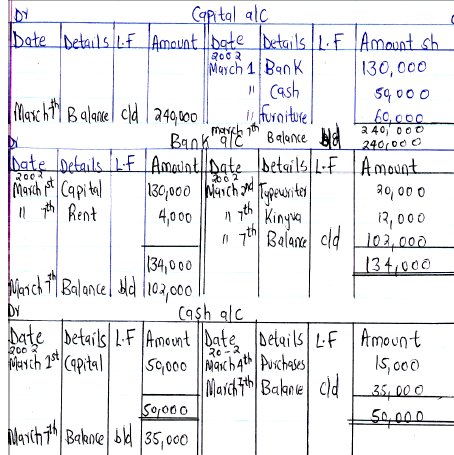 Dr Capital a/c
Date Details L.F Amount Date Details L.F Amount sh
2002
March 1 Bank 130,000
" Cash 50,000
March 7th Balance c/d 240,000 " furniture 60,000
240,000
March 7th Balance b/d 240,000
Dr Bank a/c
Date Details L.F Amount Date Details L.F Amount
2002 2002
March 1st Capital 130,000 March 2nd Typewriter 20,000
" 7th Rent 4,000 " 7th Kinyua 12,000
" 7th Balance c/d 102,000
134,000 134,000
March 7th Balance b/d 102,000
Dr Cash a/c
Date Details L.F Amount Date Details L.F Amount
2002 20-2
March 1st Capital 50,000 March 4th Purchases 15,000
March 7th Balance c/d 35,000
50,000 50,000
March 7th Balance b/d 35,000